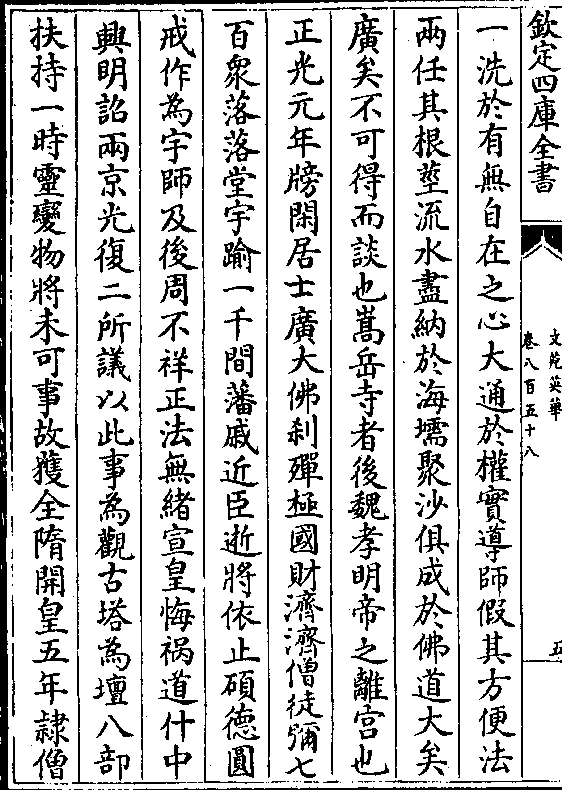 欽定四庫全書
文苑英華
卷八百五十八
五
一洗於有無自在之心大通於權實導師假其方便法
兩任其根莖流水盡納於海壖聚沙俱成於佛道大矣
廣矣不可得而談也嵩岳寺者後魏孝明帝之離宮也
正光元年牓閑居士廣大佛刹殫極國財濟濟僧徒彌七
百衆落落堂宇踰一千間藩戚近臣逝將依止碩德圓
戒作為宇師及後周不祥正法無緒宣皇悔禍道什中
興明詔兩京光復二所議以此事為觀古塔為壇八部
扶持一時靈變物將未可事故獲全隋開皇五年隸僧